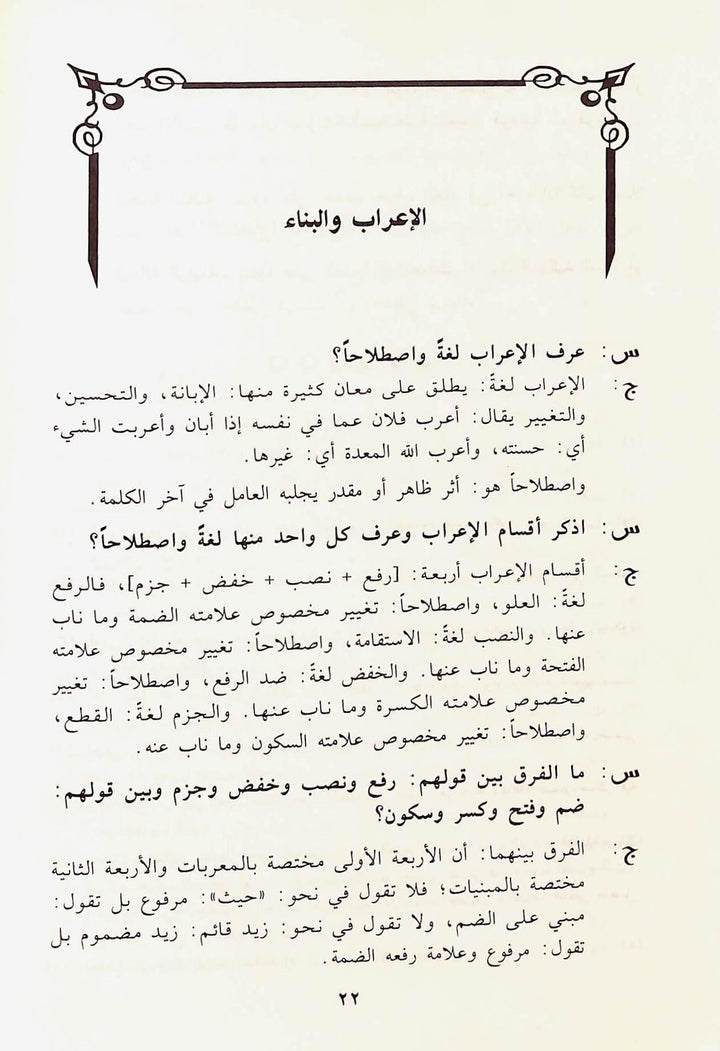 الإعراب والبناء
س: عرف الإعراب لغةً واصطلاحاً؟
ج: الإعراب لغةً: يطلق على معان كثيرة منها: الإبانة، والتحسين،
والتغيير يقال: أعرب فلان عما في نفسه إذا أبان وأعربت الشيء
أي: حسنته، وأعرب الله المعدة أي: غيرها.
واصطلاحاً هو: أثر ظاهر أو مقدر يجلبه العامل في آخر الكلمة.
س: اذكر أقسام الإعراب وعرف كل واحد منها لغةً واصطلاحاً؟
ج: أقسام الإعراب أربعة: [رفع + نصب + خفض + جزم]، فالرفع
لغةً: العلو، واصطلاحاً: تغيير مخصوص علامته الضمة وما ناب
عنها. والنصب لغةً: الاستقامة، واصطلاحاً: تغيير مخصوص علامته
الفتحة وما ناب عنها. والخفض لغةً: ضد الرفع، واصطلاحاً: تغيير
مخصوص علامته الكسرة وما ناب عنها. والجزم لغةً: القطع،
واصطلاحاً: تغيير مخصوص علامته السكون وما ناب عنه.
س: ما الفرق بين قولهم: رفع ونصب وخفض وجزم وبين قولهم:
ضم وفتح وكسر وسكون؟
ج: الفرق بينهما: أن الأربعة الأولى مختصة بالمعربات والأربعة الثانية
مختصة بالمبنيات؛ فلا تقول في نحو: «حيث»: مرفوع بل تقول:
مبني على الضم، ولا تقول في نحو: زيد قائم: زيد مضموم بل
تقول: مرفوع وعلامة رفعه الضمة.
٢٢